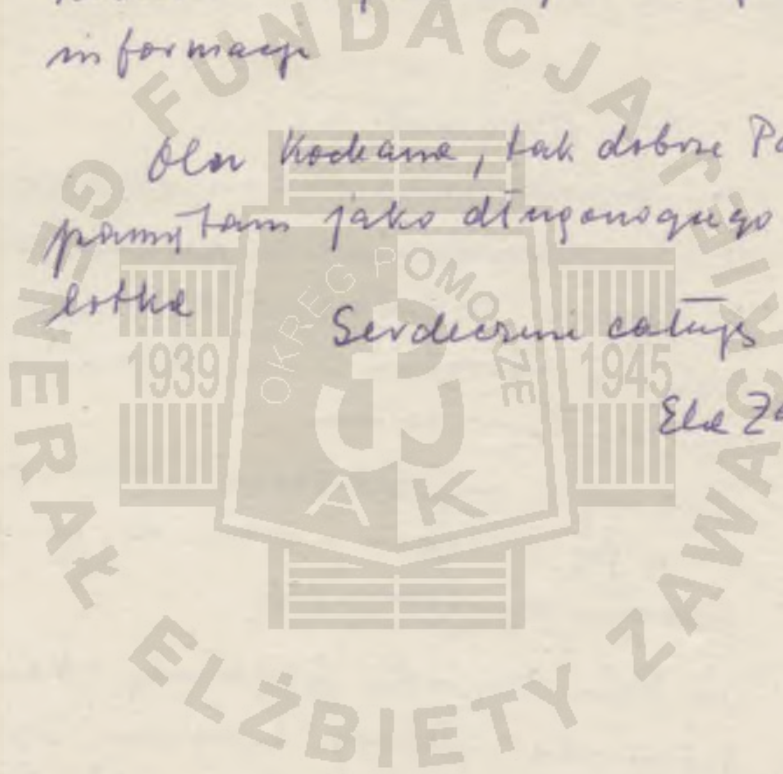 informacje
Olu Kochana, tak dobrze
pamiętam jako długonogiego
Serdecznie całuję
Ela
FUNDACJA GENERAŁ ELŻBIETY
OKRĘG POMORZE
1939
1945
AK